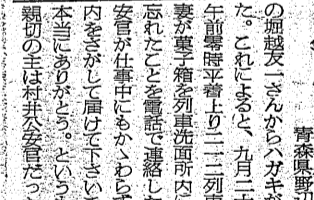 青森県野辺
の堀越友一さんからハガキが
た。これによると、九月二十
午前零時平着上り二一二列車
妻が菓子箱を列車洗面所内に
忘れたことを電話で連絡した
安官が仕事中にもかゝわらず
内をさがして届けて下さい
本当にありがとう。という
親切の主は村井公安官だっ